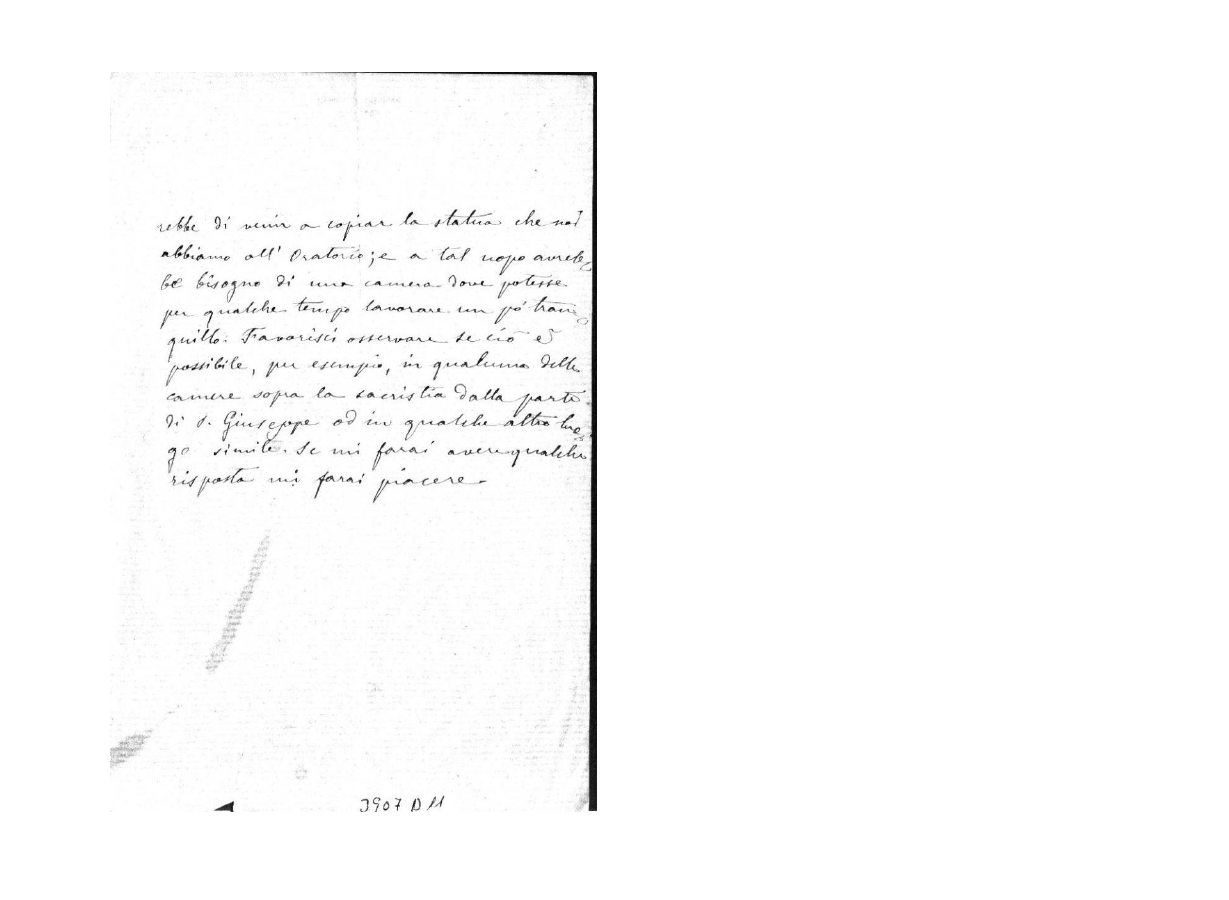 rebbe di venir a copiar la statua che noi
abbiamo all' Oratorio; e a tal uopo avreb-
be bisogno di una camera dove potesse
per qualche tempo lavorare un pò tran-
quillo. Favorisci osservare se ciò è
possibile, per esempio, in qualcuna delle
camere sopra la sacristia dalla parte
di S. Giuseppe od in qualche altro luo-
go simile. Se mi farai avere qualche
risposta mi farai piacere.
3907 D 11